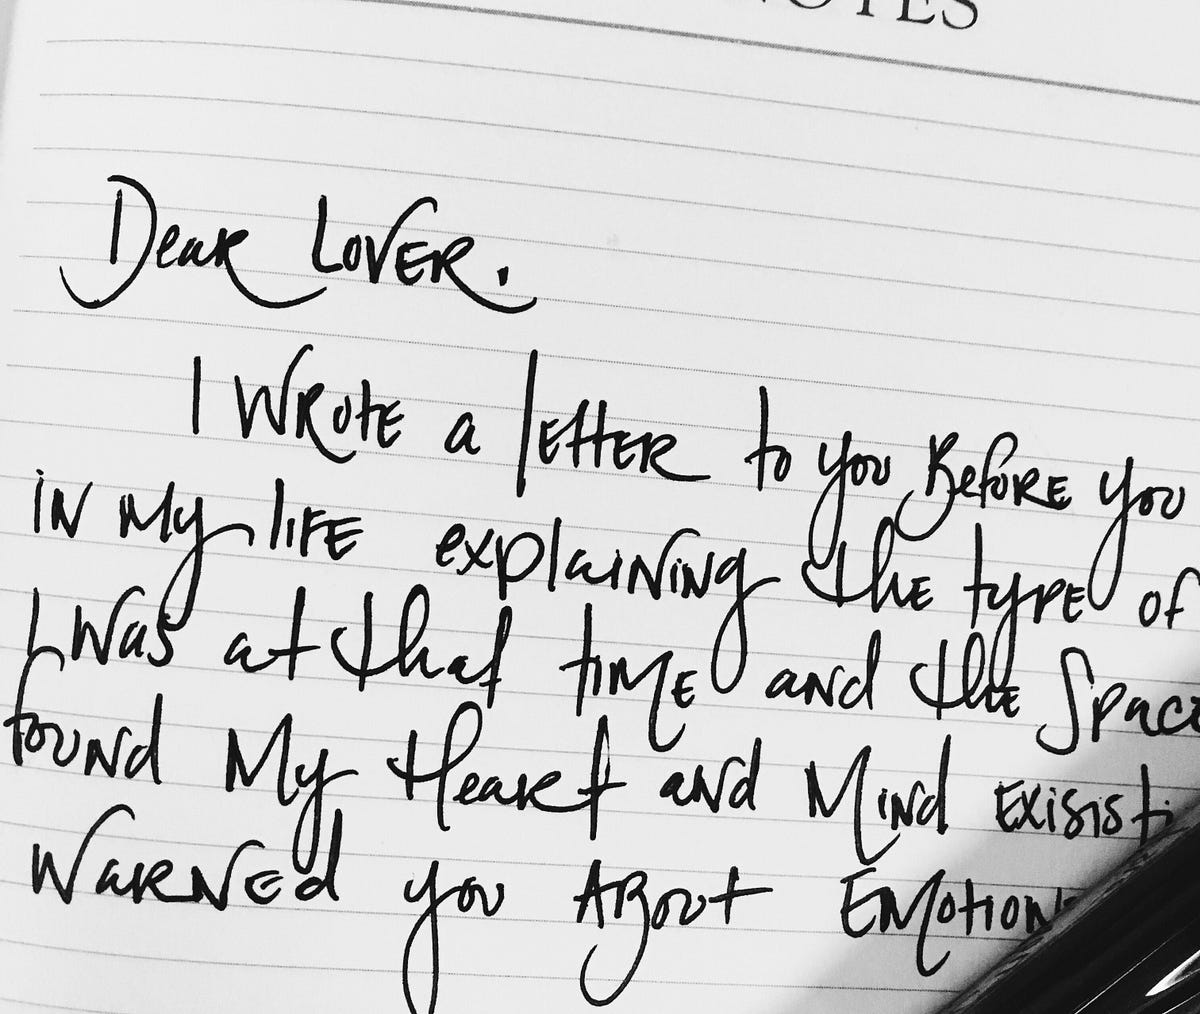 NOTES
Dear LOVER.
I WROTE a lETTER to you BefORE you
iN My liFE explaiNiNg the type of
I Was at that tiME and the Space
found My Heart and Mind Exisisti
WarNed you About EMotion